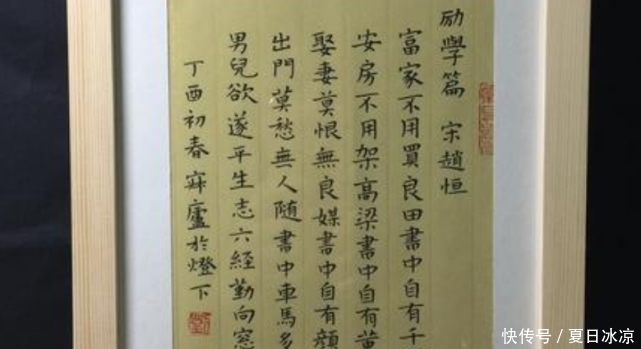 励學篇 宋趙恒
富家不用買良田書中自有千
安房不用架高梁書中自有黄
娶妻莫恨無良媒書中自有顏
出門莫愁無人隨書中車馬多
男兒欲遂平生志六經勤向窓
丁酉初春寐廬於燈下
快传号/夏日冰凉